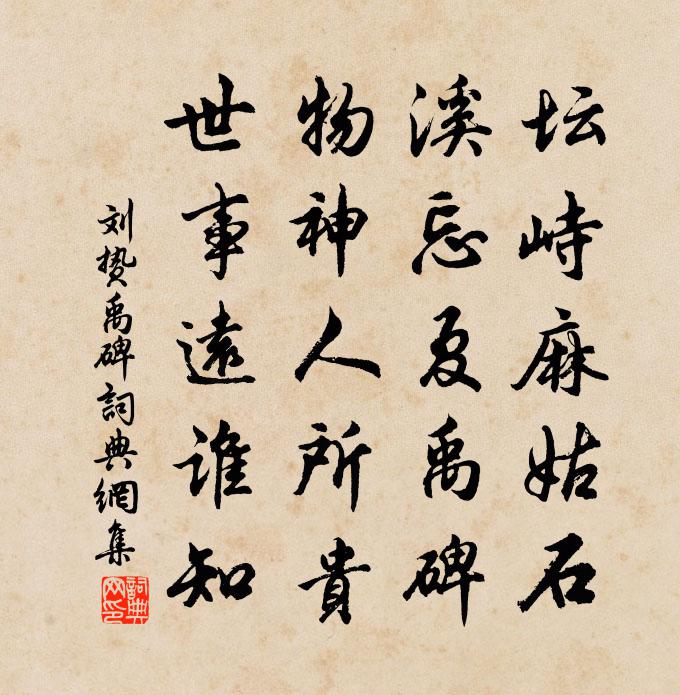 坛峙麻姑石
溪忘夏禹碑
物神人所貴
世事遠誰知
刘挚禹碑詞典網集
詞典網印